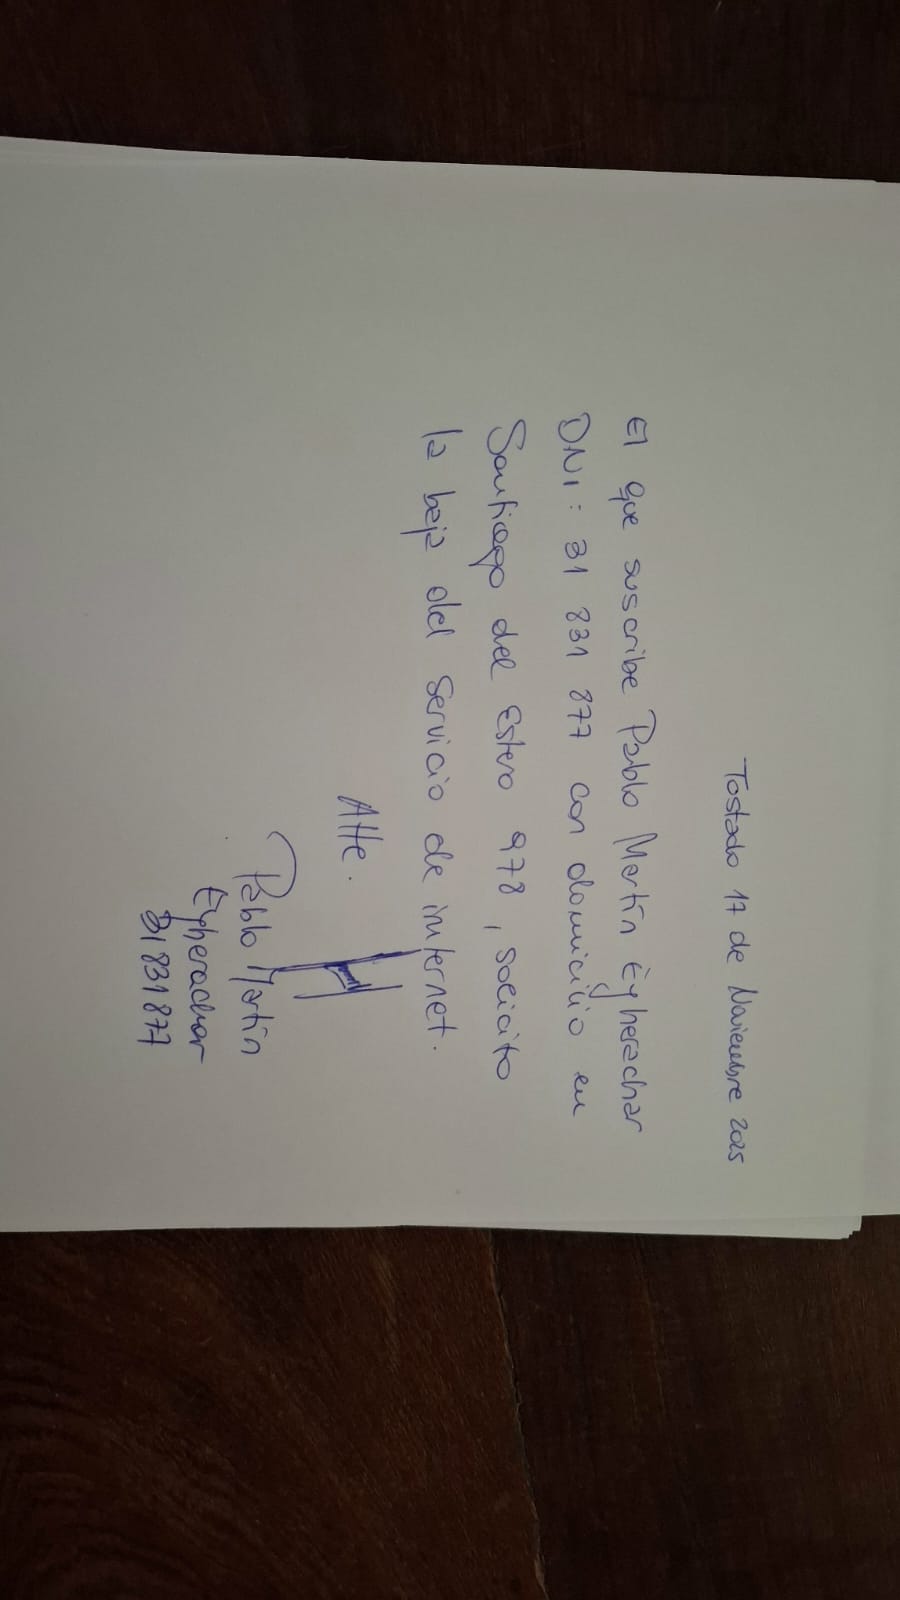 Tostado 17 de Noviembre 2025
El que suscribe Pablo Martín Eyherachar
DNI: 31 831 877 con domicilio en
Santiago del Estero 978, solicito
la baja del servicio de internet.
Atte.
Pablo Martín
Eyherachar
31831877